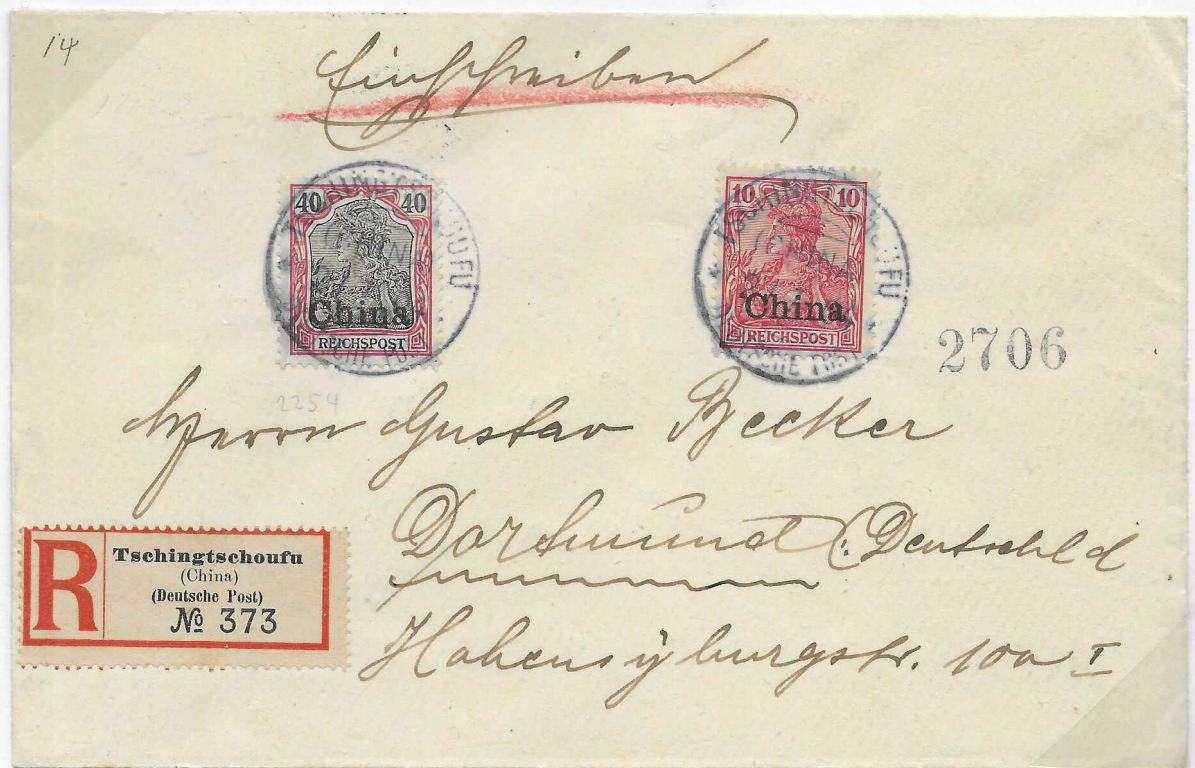 14
Einschreiben
40 40
China
REICHSPOST
10 10
China
REICHSPOST
2706
2254
Herrn Gustav Becker
Dortmund (: Deutschld
Hohensyburgstr. 100 I
R
Tschingtschoufu
(China)
(Deutsche Post)
№ 373